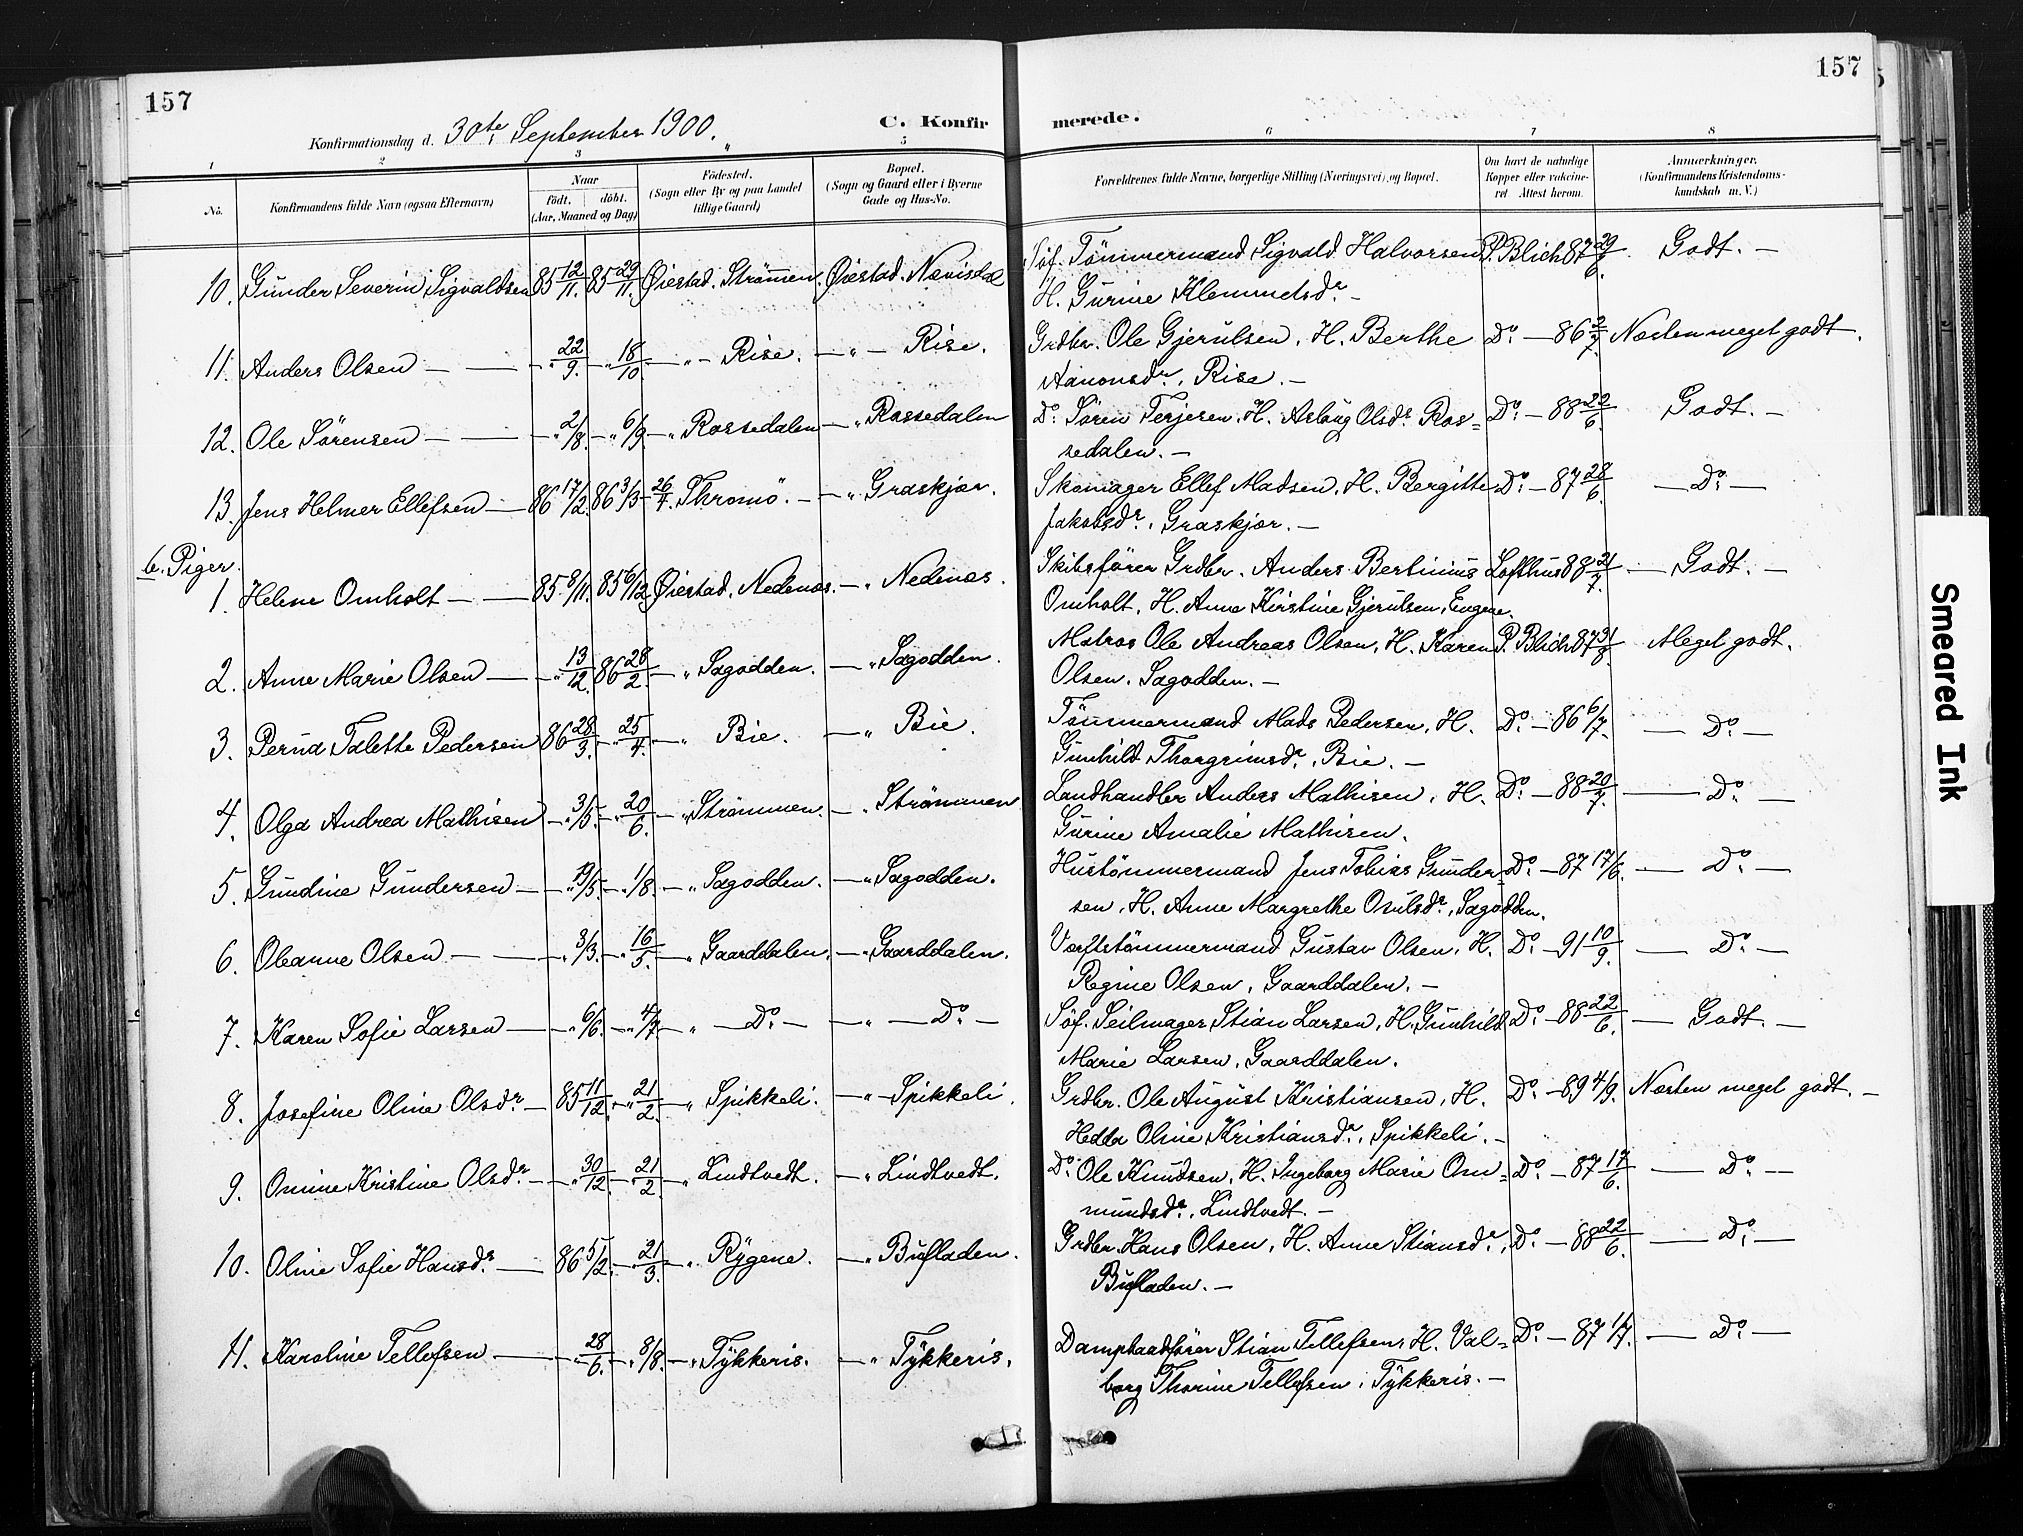 157
157
Konfirmationsdag d. 30te September 1900.
C. Konfirmerede.
1 2 3 5 6 7 8
No. Konfirmandens fulde Navn (ogsaa Efternavn) Naar født. døbt. (Aar, Maaned og Dag) Fødested. (Sogn eller By og paa Landet tillige Gaard) Bopæl. (Sogn og Gaard eller i Byerne Gade og Hus-No. Forældrenes fulde Navne, borgerlige Stilling (Næringsvei) og Bopæl. Om havt de naturlige Kopper eller vakcineret Attest herom. Anmerkninger. (Konfirmandens Kristendomskundskab m. V.)
10. Gunder Severin Sigvaldsen 85 12/11. 85 29/11. Øiestad. Strömmen. Øiestad. Nævisdal Søf. Tømmermand Sigvald Halvorsen P. Blich 87 29/6. Godt. —
H. Gurine Klemmetsdr. —
11. Anders Olsen — — „ 22/9. — „ 18/10. — „ — Rise. — „ — Rise. Grdbr. Ole Gjerulsen, H. Berthe Do — 86 2/7. Næsten meget godt.
Aanonsdr., Rise. —
12. Ole Sörensen — — „ 2/8. — „ 6/9 — „ Rossedalen — „ Rossedalen Do Sören Terjesen, H. Aslaug Olsdr. Ros= Do. — 88 22/6. Godt. —
sedalen. —
13. Jens Helmer Ellefsen — 86 17/2. 86 3/3 — 26/4. Thromö. — — „ Graskjær. Skomager Ellef Madsen, H. Bergitte Do. — 87 28/6. — Do. —
Jakobsdr., Graskjær. —
b. Piger.
1. Helene Omholt — — 85 8/11. 85 6/12. Øiestad. Nedenæs. — „ Nedenæs. Skibsfører Grdbr. Anders Bertinius Lofthus 88 21/7. — Godt. —
Omholt, H. Anne Kirstine Gjerulsen, Engene.
2. Anne Marie Olsen — — „ 13/12. 86 28/2. — „ Sagodden. — „ Sagodden. Matros Ole Andreas Olsen, H. Karen P. Blich 87 31/8. Meget godt.
Olsen. Sagodden. —
3. Perud Talette Pedersen 86 28/3. — „ 25/4. — „ Bie. — „ Bie. Tømmermand Mads Pedersen, H. Do. — 86 6/7. — Do. —
Gunhild Thorgrimsdr., Bie. —
4. Olga Andrea Mathisen — „ 3/5. — „ 20/6. — „ Strömmen. — „ Strömmen Landhandler Anders Mathisen, H. Do. — 88 20/7. — Do. —
Gurine Amalie Mathisen.
5. Gundine Gundersen — — „ 19/5. — „ 1/8. — „ Sagodden. — „ Sagodden. Hustømmermand Jens Tobias Gunder= Do. — 87 17/6. — Do. —
sen, H. Anne Margrethe Osulsdr., Sagodden.
6. Obanne Olsen — — „ 3/3. — „ 16/5. — „ Gaarddalen. — „ Gaarddalen. Værftstømmermand Gustav Olsen, H. Do. — 91 10/9. — Do. —
Regine Olsen, Gaarddalen. —
7. Karen Sofie Larsen — — „ 6/6. — „ 4/7. — „ — Do. — — „ — Do. — Søf. Seilmager Stian Larsen, H. Gunhild Do. — 88 22/6. — Godt. —
Marie Larsen, Gaarddalen.
8. Josefine Oline Olsdr. — 85 11/12. — „ 21/2. — „ Spikkeli. — „ Spikkeli. Grdbr. Ole August Kristiansen, H. Do. — 89 4/9. Næsten meget godt. —
Hedda Oline Kristiansdr., Spikkeli. —
9. Omine Kristine Olsdr. — — „ 30/12. — „ 21/2. — „ Lindtvedt. — „ Lindtvedt. Do. Ole Knudsen, H. Ingeborg Marie Om= Do. — 87 17/6. — Do. —
mundsdr., Lindtvedt. —
10. Oline Sofie Hansdr. — 86 5/2. — „ 21/3. — „ Rygene. — „ Bufladen. Grdbr. Hans Olsen, H. Anne Stiansdr., Do. — 88 22/6. — Do. —
Bufladen. —
11. Karoline Tellefsen — — „ 28/6. — „ 8/8. — „ Tykkeris. — „ Tykkeris. Dampbaadfører Stian Tellefsen, H. Val= Do. — 87 1/7. — Do. —
borg Thorine Tellefsen, Tykkeris. —
Smeared Ink